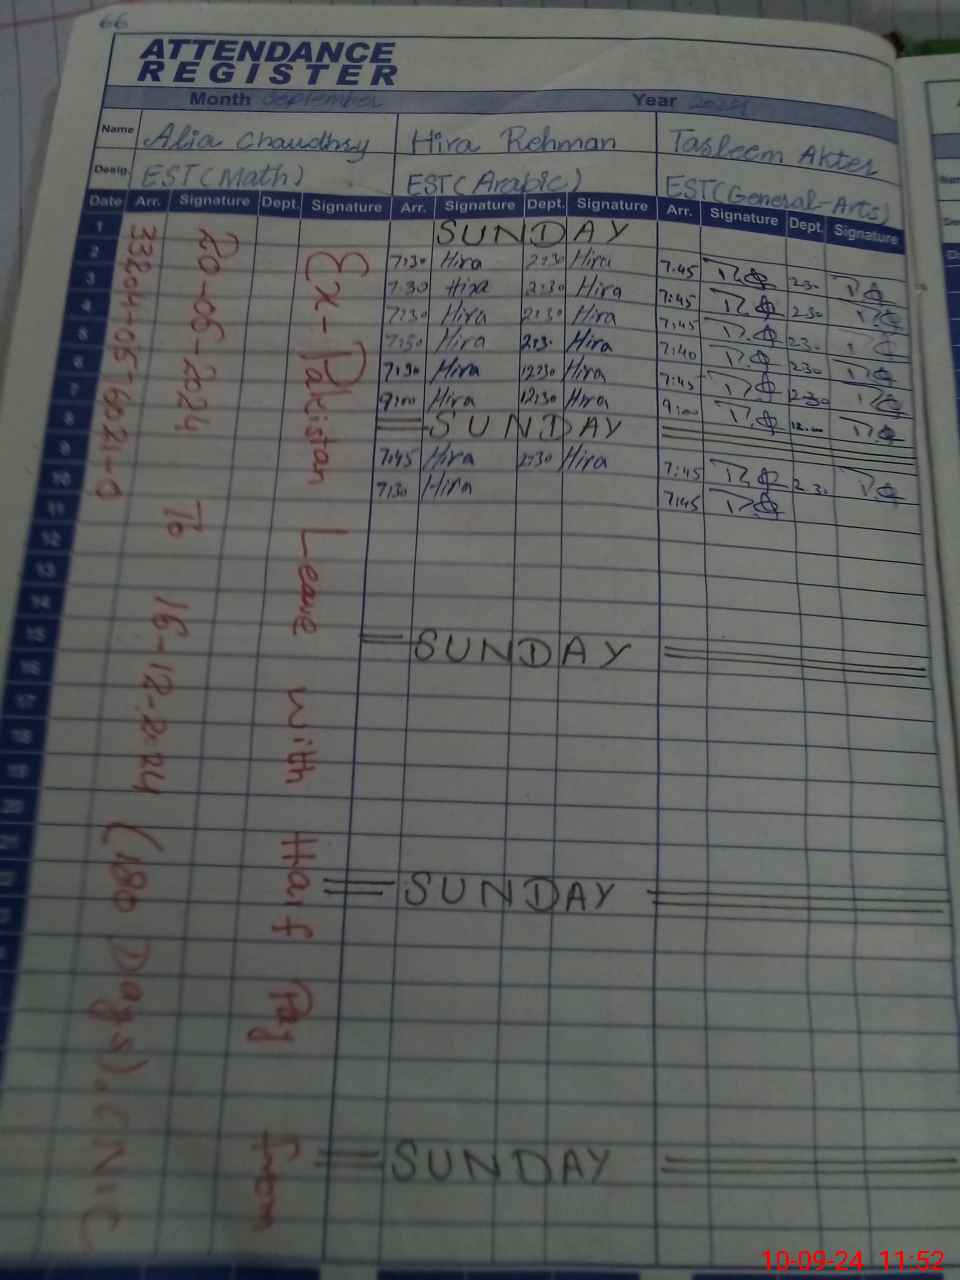 66
ATTENDANCE
REGISTER
Month September Year 2024
Name Alia Chaudhry Hira Rehman Tasleem Akter
Desig. EST (Math) EST (Arabic) EST (General-Arts)
Date Arr. Signature Dept. Signature Arr. Signature Dept. Signature Arr. Signature Dept. Signature
1 SUNDAY
2 7:30 Hira 2:30 Hira 7:45 2:30
3 7:30 Hira 2:30 Hira 7:45 2:30
4 7:30 Hira 2:30 Hira 7:45 2:30
5 7:30 Hira 2:30 Hira 7:40 2:30
6 7:30 Hira 12:30 Hira 7:45 2:30
7 9:00 Hira 12:30 Hira 9:00 12:00
8 SUNDAY
9 7:45 Hira 2:30 Hira 7:45 2:30
10 7:30 Hira 7:45
11
12
13
14
15 SUNDAY
16
17
18
19
20
21
22 SUNDAY
SUNDAY
Ex-Pakistan Leave with Half Pay from
20-06-2024 To 16-12-2024 (180 Days). CNIC
33204-0516021-0
10-09-24 11:52